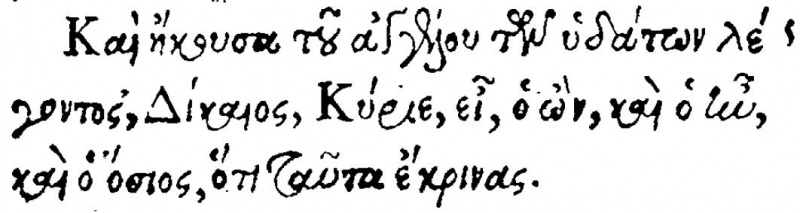 Καὶ ἤκουσα τοῦ ἀγγέλου τῶν ὑδάτων λέ-
γοντος, Δίκαιος, Κύριε, εἶ, ὁ ὢν, καὶ ὁ ἦν,
καὶ ὁ ὅσιος, ὅτι ταῦτα ἔκρινας.